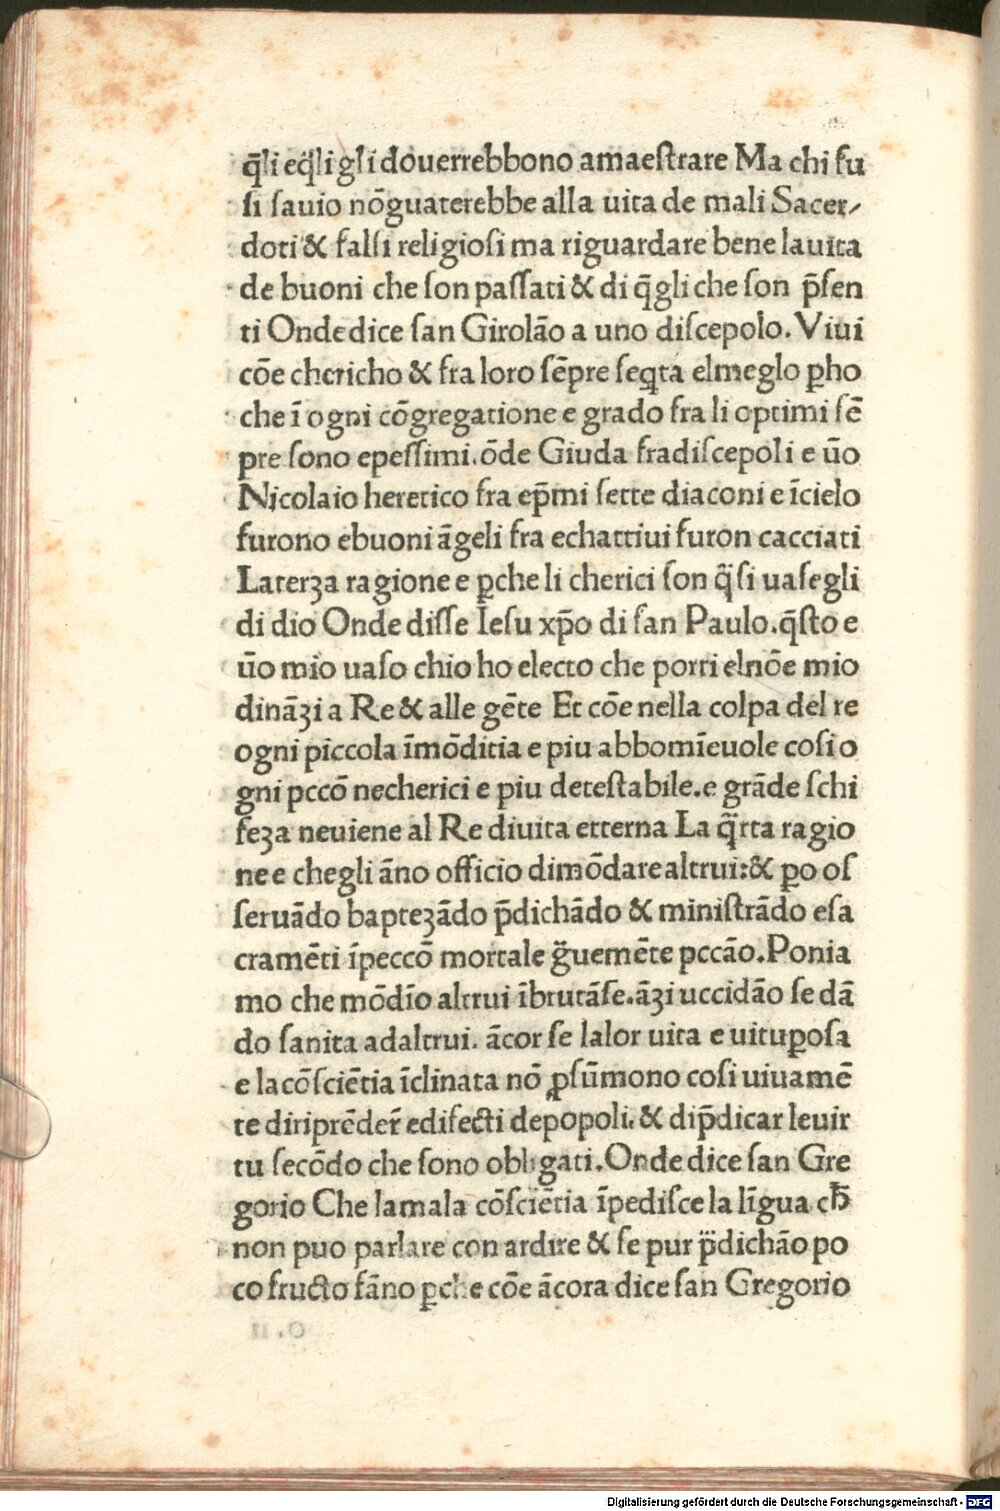 q̄li eq̄li gli douerrebbono amaeſtrare Ma chi fu
ſi ſauio nōguaterebbe alla uita de mali Sacer⸗
doti & falſi religioſi ma riguardare bene lauita
de buoni che ſon paſſati & di q̄gli che ſon p̄ſen
ti Onde dice ſan Girolāo a uno diſcepolo. Viui
cōe chericho & fra loro ſēpre ſeq̄ta elmeglo ꝑho
che ī ogni cōgregatione e grado fra li optimi ſē
pre ſono epeſſimi. ōde Giuda fradiſcepoli e ūo
Nicolaio heretico fra ep̄mi ſette diaconi e īcielo
furono ebuoni āgeli fra echattiui furon cacciati
Laterza ragione e ꝑche li cherici ſon q̄ſi uaſegli
di dio Onde diſſe Ieſu xp̄o di ſan Paulo. q̄ſto e
ūo mio uaſo chio ho electo che porti elnōe mio
dināzi a Re & alle gēte Et cōe nella colpa del re
ogni piccola īmōditia e piu abbomīeuole coſi o
gni pccō necherici e piu deteſtabile. e grāde ſchi
feza neuiene al Re diuita etterna La q̄rta ragio
ne e chegli āno officio dimōdare altrui: & ꝑo oſ
ſeruādo baptezādo p̄dichādo & miniſtrādo eſa
cramēti īpeccō mortale ḡuemēte pccāo. Ponia
mo che mōdīo altrui ībrutāſe. āzi uccidāo ſe dā
do ſanita adaltrui. ācor ſe lalor uita e uituꝑoſa
e lacōſciētia īclinata nō ꝓſūmono coſi uiuamē
te diriprēder̄ edifecti depopoli. & dip̄dicar leuir
tu ſecōdo che ſono obligati. Onde dice ſan Gre
gorio Che lamala cōſciētia īpediſce la līgua ch̄
non puo parlare con ardire & ſe pur p̄dichāo po
co fructo fāno ꝑche cōe ācora dice ſan Gregorio
Digitalisierung gefördert durch die Deutsche Forschungsgemeinschaft - DFG